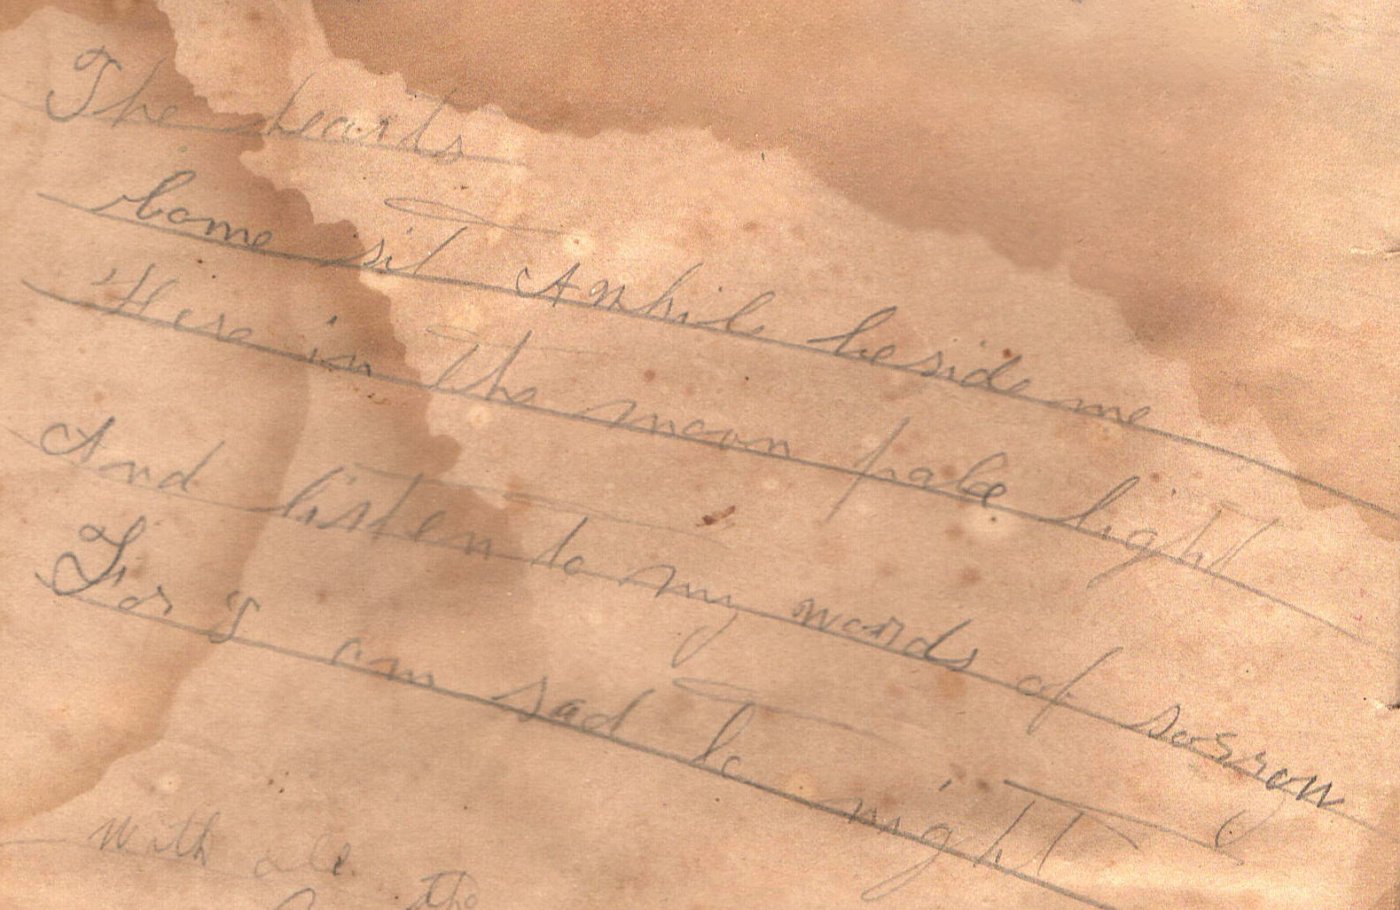 The hearts
Come sit Awhile beside me
Here in the moon pale light
And listen to my words of sorrow
For I am sad to night
with all the